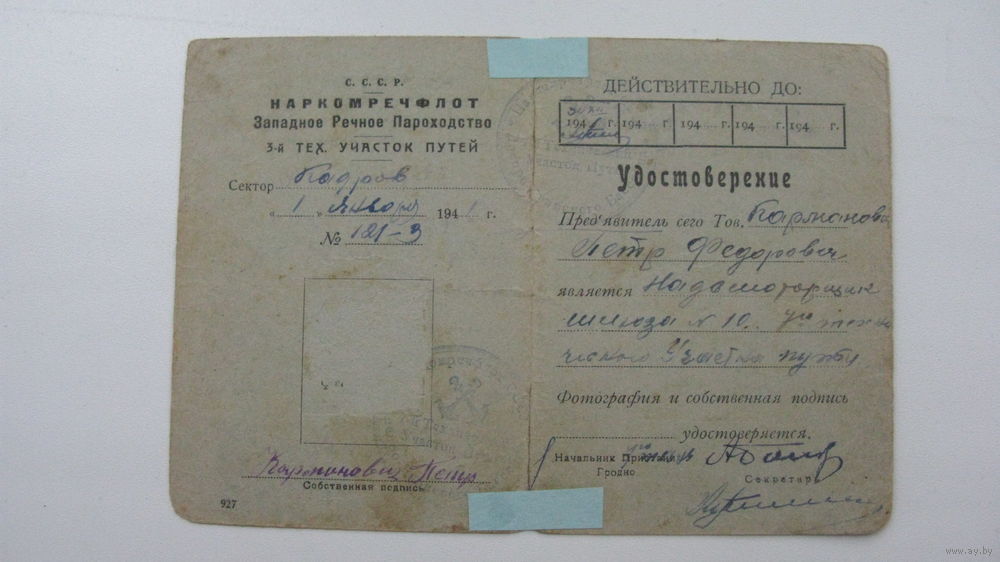 С. С. С. Р.
НАРКОМРЕЧФЛОТ
Западное Речное Пароходство
3-й ТЕХ. УЧАСТОК ПУТЕЙ
Сектор Кадров
„ 1 " Января 1941 г.
№ 121-3
Карманович Петр
Собственная подпись
927
ДЕЙСТВИТЕЛЬНО ДО:
194 г. 194 г. 194 г. 194 г. 194 г.
Удостоверение
Пред'явитель сего Тов. Карманович
Петр Федорович
является Надсмотрщик
шлюза N 10.
ческого Участка пути
Фотография и собственная подпись
удостоверяется.
Начальник Пристани
Гродно
Секретарь
www.ay.by